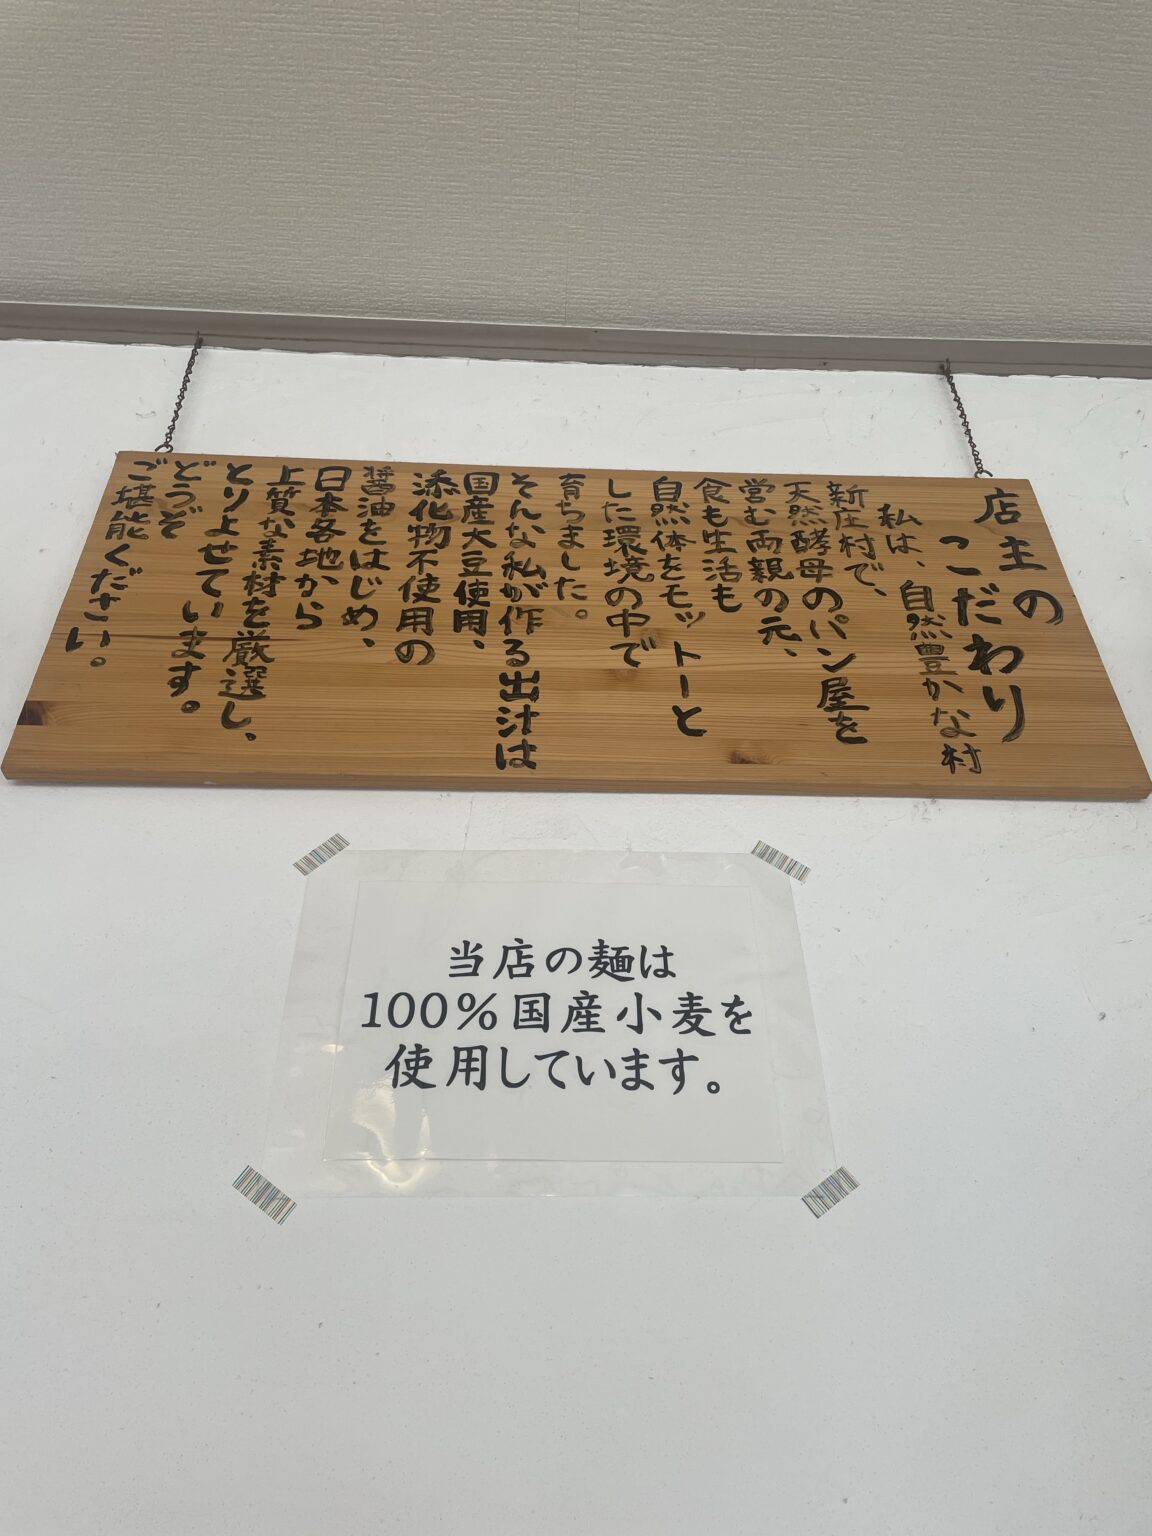 店主の
こだわり
私は、自然豊かな村
新庄村で、
天然酵母のパン屋を
営む両親の元、
食も生活も
自然体をモットーと
した環境の中で
育ちました。
そんな私が作る出汁は
国産大豆使用、
添化物不使用の
醤油をはじめ、
日本各地から
上質な素材を厳選し、
とりよせています。
どうぞ
ご堪能ください。
当店の麺は
100%国産小麦を
使用しています。